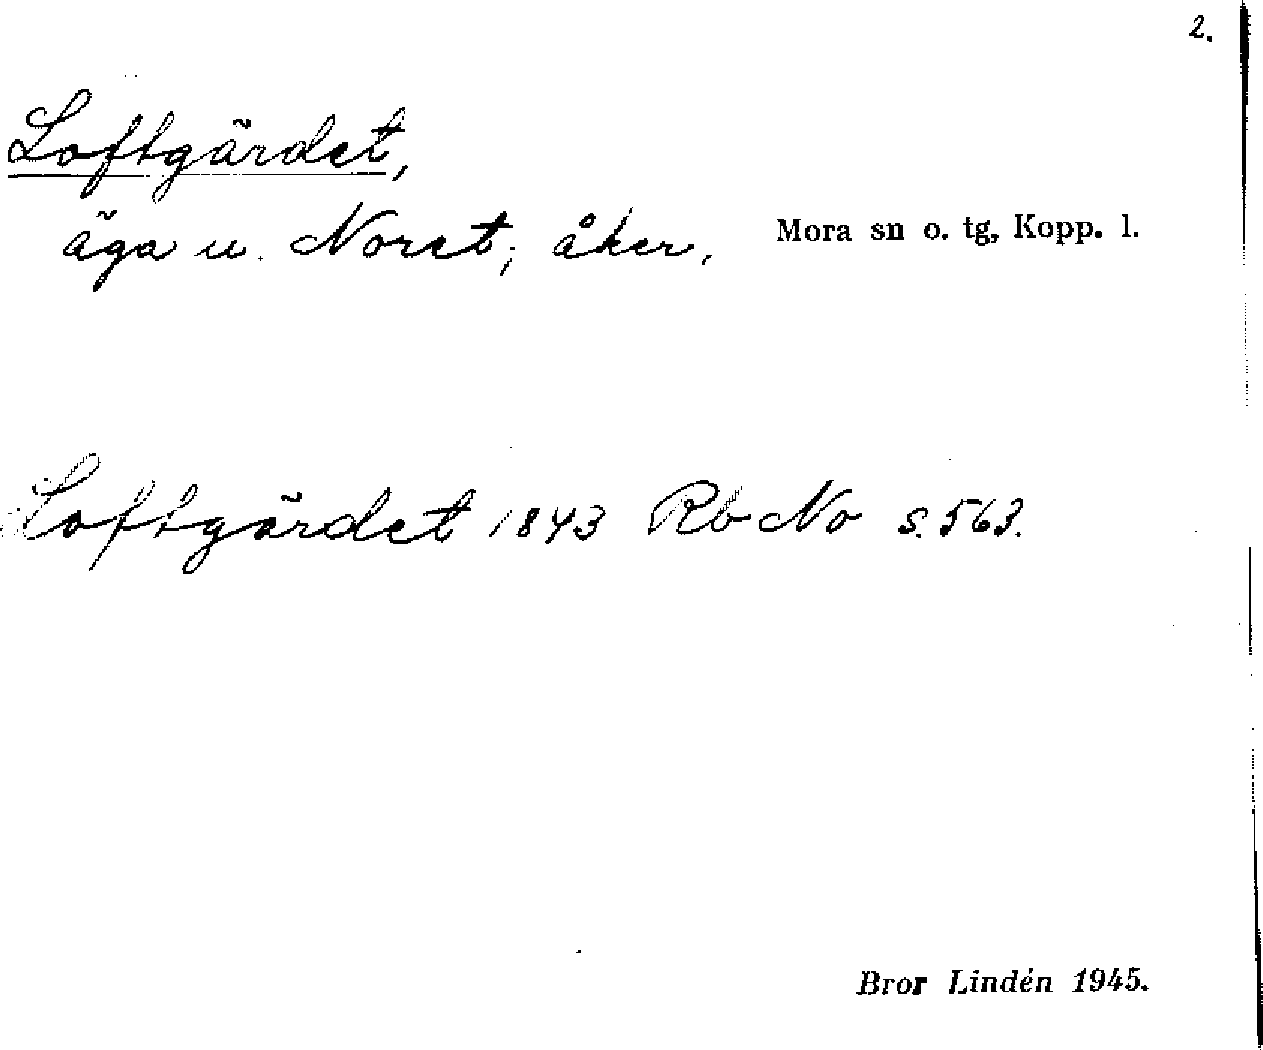 2.
Loftgärdet,
äga u. Noret; åker.
Mora sn o. tg, Kopp. l.
Loftgärdet 1843 Rb No s. 563.
Bror Lindén 1945.